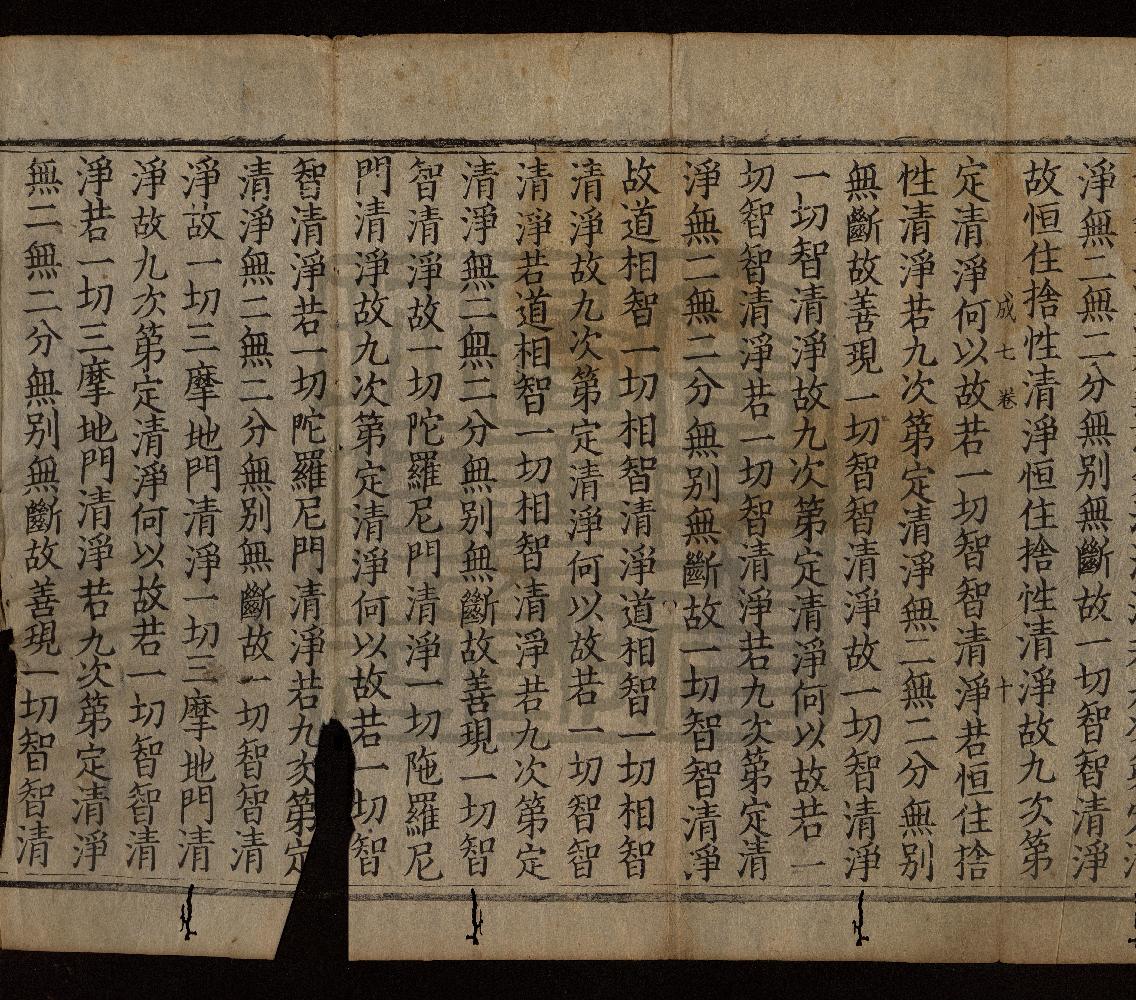 淨無二無二分無別無斷故一切智智清淨
故恒住捨性清淨恒住捨性清淨故九次第
成七卷 十
定清淨何以故若一切智智清淨若恒住捨
性清淨若九次第定清淨無二無二分無別
無斷故善現一切智智清淨故一切智清淨
一切智清淨故九次第定清淨何以故若一
切智智清淨若一切智清淨若九次第定清
淨無二無二分無別無斷故一切智智清淨
故道相智一切相智清淨道相智一切相智
清淨故九次第定清淨何以故若一切智智
清淨若道相智一切相智清淨若九次第定
清淨無二無二分無別無斷故善現一切智
智清淨故一切陀羅尼門清淨一切陁羅尼
門清淨故九次第定清淨何以故若一切智
智清淨若一切陀羅尼門清淨若九次第定
清淨無二無二分無別無斷故一切智智清
淨故一切三摩地門清淨一切三摩地門清
淨故九次第定清淨何以故若一切智智清
淨若一切三摩地門清淨若九次第定清淨
無二無二分無別無斷故善現一切智智清